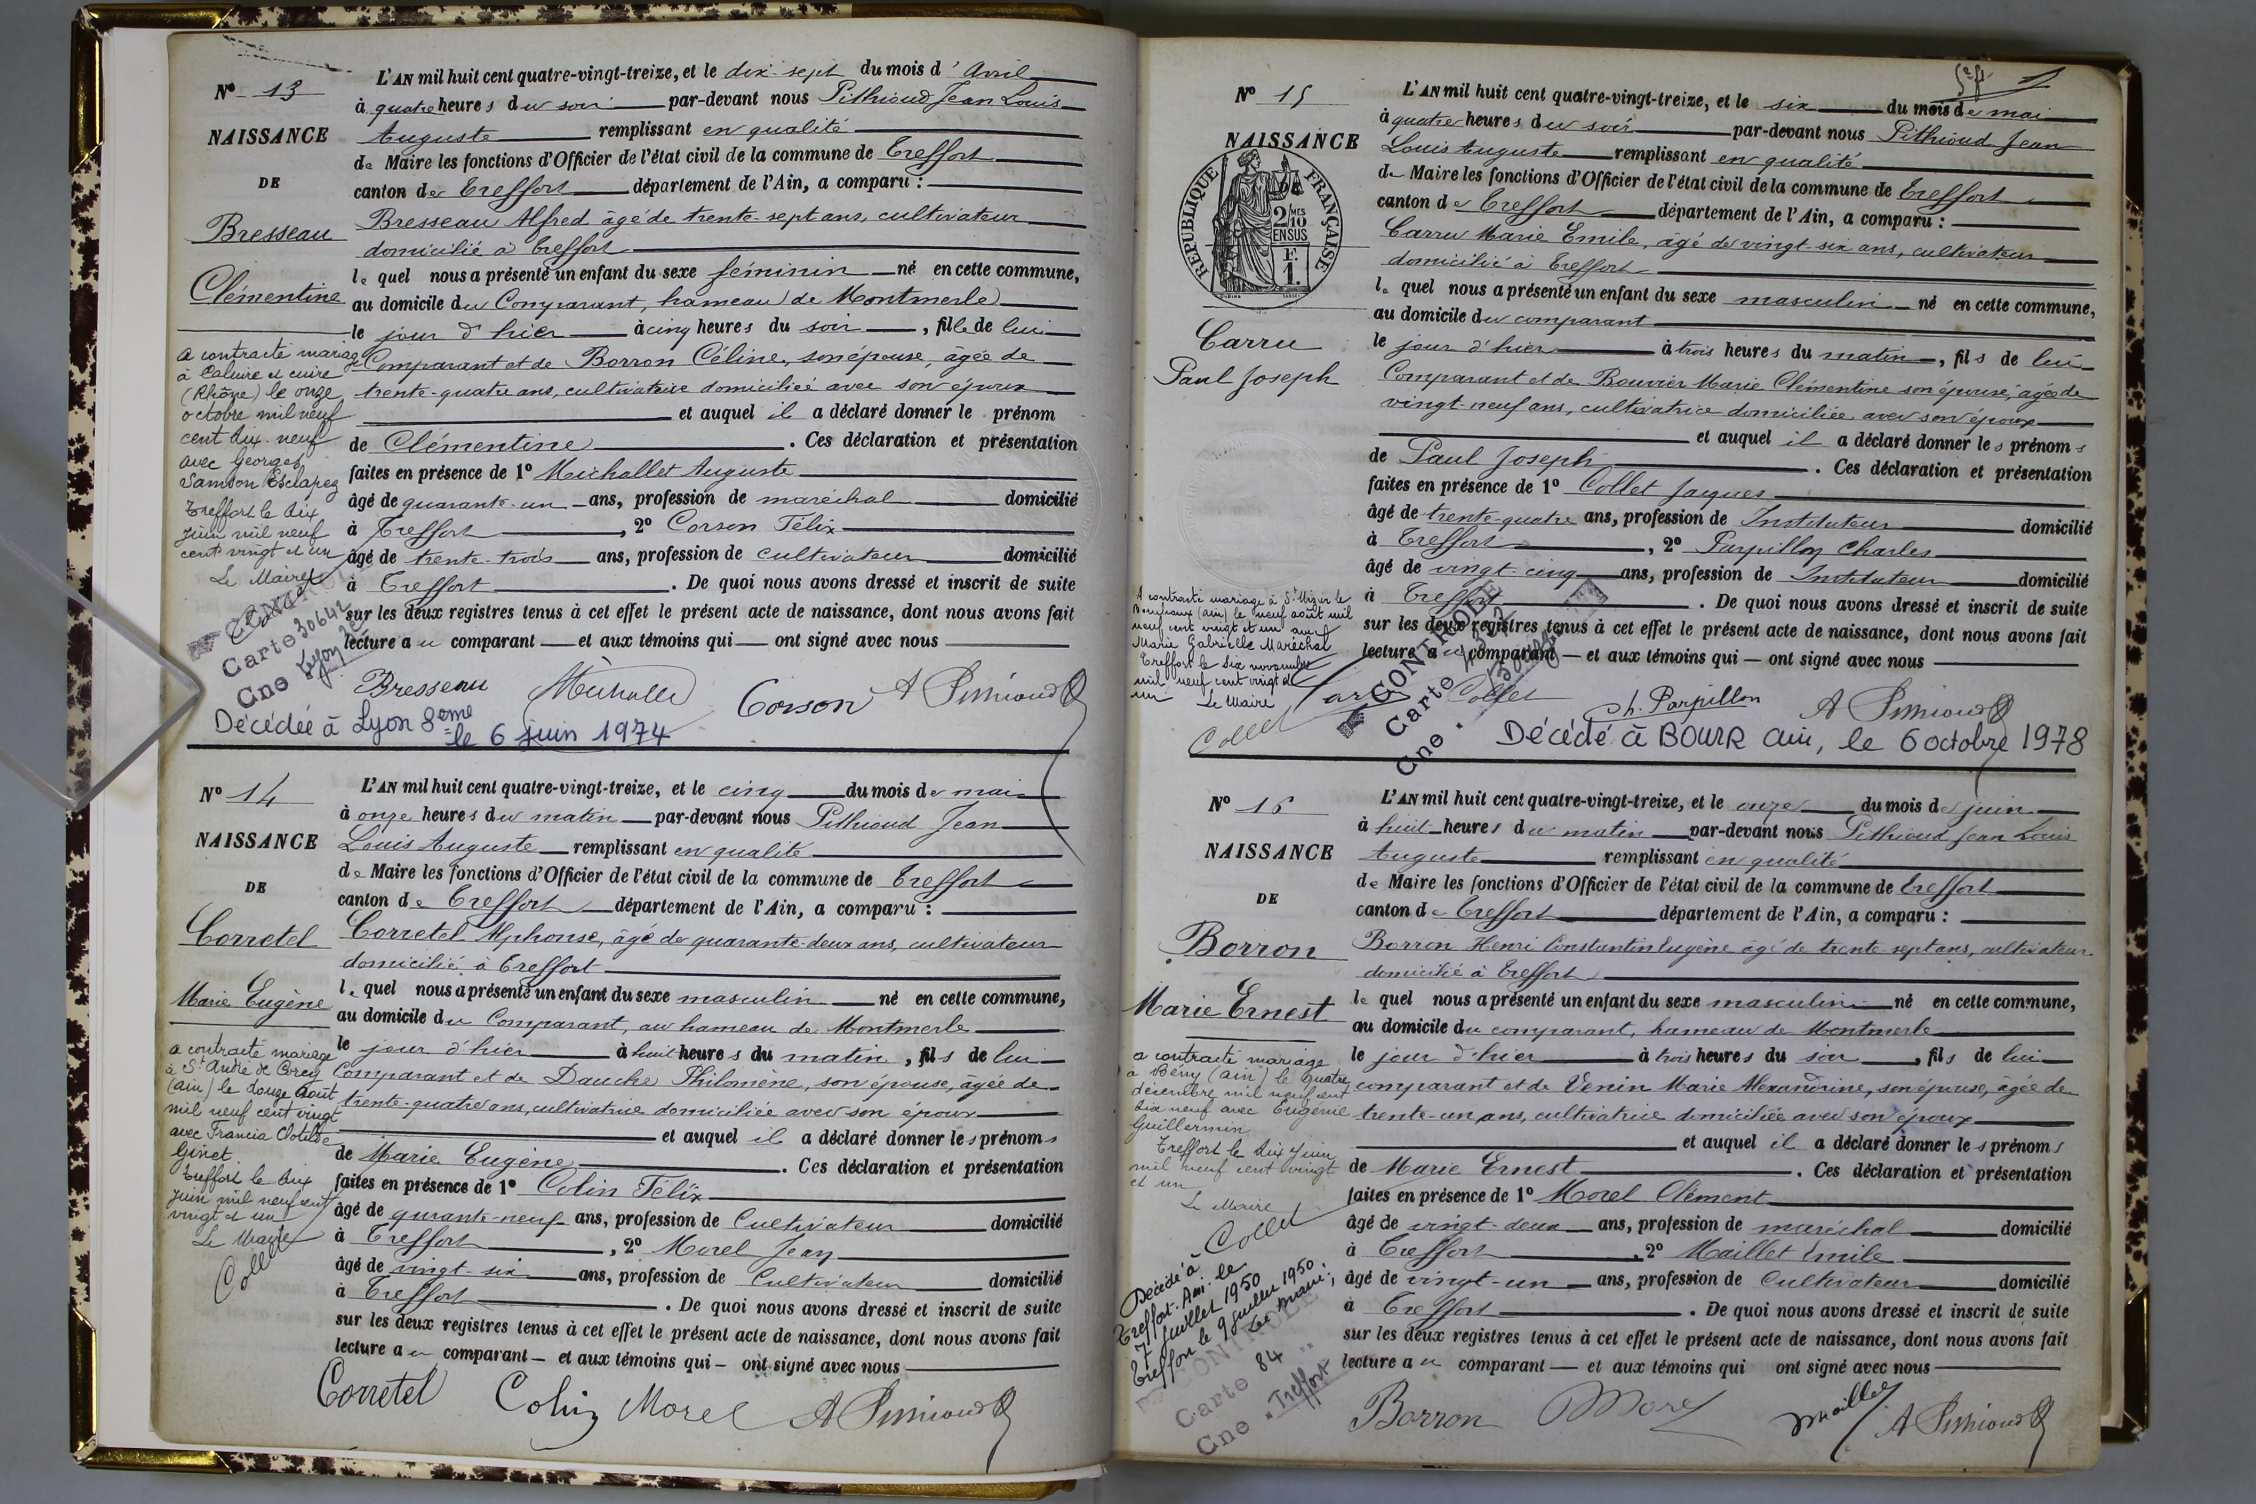 N° 13
NAISSANCE
DE
Bresseau
Clémentine
a contracté mariage
à Caluire et cuire
(Rhône) le onze
octobre mil neuf
cent dix-neuf
avec Georges
Samson Esclapez
Treffort le dix
juin mil neuf
cent vingt et un
Le Maire
Carte 30642
Cne Lyon 3e
L'AN mil huit cent quatre-vingt-treize, et le dix-sept du mois d'Avril
à quatre heures du soir par-devant nous Pithioud Jean Louis
Auguste remplissant en qualité
de Maire les fonctions d'Officier de l'état civil de la commune de Treffort
canton de Treffort département de l'Ain, a comparu :
Bresseau Alfred âgé de trente-sept ans, cultivateur
domicilié à Treffort
le quel nous a présenté un enfant du sexe féminin né en cette commune,
au domicile du Comparant, hameau de Montmerle
le jour d'hier à cinq heures du soir, fille de lui
Comparant et de Borron Céline, son épouse, âgée de
trente-quatre ans, cultivatrice domiciliée avec son époux
et auquel il a déclaré donner le prénom
de Clémentine. Ces déclaration et présentation
faites en présence de 1° Michallet Auguste
âgé de quarante-un ans, profession de maréchal domicilié
à Treffort, 2° Corson Félix
âgé de trente-trois ans, profession de cultivateur domicilié
à Treffort. De quoi nous avons dressé et inscrit de suite
sur les deux registres tenus à cet effet le présent acte de naissance, dont nous avons fait
lecture au comparant — et aux témoins qui — ont signé avec nous
Bresseau Michallet Corson A Pithioud
Décédée à Lyon 8eme
le 6 juin 1974
N° 14
NAISSANCE
DE
Corretel
Marie Eugène
a contracté mariage
à St André de Corcy
(ain) le douze août
mil neuf cent vingt
avec Francia Clotilde
Ginet
Treffort le dix
juin mil neuf cent
vingt et un
Le Maire
Collet
L'AN mil huit cent quatre-vingt-treize, et le cinq du mois de mai
à onze heures du matin par-devant nous Pithioud Jean
Louis Auguste remplissant en qualité
de Maire les fonctions d'Officier de l'état civil de la commune de Treffort
canton de Treffort département de l'Ain, a comparu :
Corretel Alphonse, âgé de quarante-deux ans, cultivateur
domicilié à Treffort
le quel nous a présenté un enfant du sexe masculin né en cette commune,
au domicile du Comparant, au hameau de Montmerle
le jour d'hier à huit heures du matin, fils de lui
Comparant et de Dauche Philomène, son épouse, âgée de
trente-quatre ans, cultivatrice domiciliée avec son époux
et auquel il a déclaré donner les prénoms
de Marie Eugène. Ces déclaration et présentation
faites en présence de 1° Colin Félix
âgé de qurante-neuf ans, profession de Cultivateur domicilié
à Treffort, 2° Morel Jean
âgé de vingt-six ans, profession de Cultivateur domicilié
à Treffort. De quoi nous avons dressé et inscrit de suite
sur les deux registres tenus à cet effet le présent acte de naissance, dont nous avons fait
lecture au comparant — et aux témoins qui — ont signé avec nous
Corretel Colin Morel A Pithioud
N° 15
NAISSANCE
RÉPUBLIQUE FRANÇAISE
2/10 MES
EN SUS
F.
1.
Carru
Paul Joseph
A contracté mariage à
(ain) le neuf août mil
neuf cent vingt et un avec
Marie Gabrielle Maréchal
Treffort le six novembre
mil neuf cent vingt et
un Le Maire
Collet
L'AN mil huit cent quatre-vingt-treize, et le six du mois de mai
à quatre heures du soir par-devant nous Pithioud Jean
Louis Auguste remplissant en qualité
de Maire les fonctions d'Officier de l'état civil de la commune de Treffort
canton de Treffort département de l'Ain, a comparu :
Carru Marie Emile, âgé de vingt-six ans, cultivateur
domicilié à Treffort
le quel nous a présenté un enfant du sexe masculin né en cette commune,
au domicile du comparant
le jour d'hier à trois heures du matin, fils de lui
Comparant et de Bouvier Marie Clémentine son épouse, âgée de
vingt-neuf ans, cultivatrice domiciliée avec son époux
et auquel il a déclaré donner les prénoms
de Paul Joseph. Ces déclaration et présentation
faites en présence de 1° Collet Jaques
âgé de trente-quatre ans, profession de Instituteur domicilié
à Treffort, 2° Parpillon Charles
âgé de vingt-cinq ans, profession de Instituteur domicilié
à Treffort. De quoi nous avons dressé et inscrit de suite
sur les deux registres tenus à cet effet le présent acte de naissance, dont nous avons fait
lecture au comparant — et aux témoins qui — ont signé avec nous
CONTROLE
Carte
Cne
Collet Ch. Parpillon A Pithioud
Décédé à BOURG ain, le 6 octobre 1978
N° 16
NAISSANCE
DE
Borron
Marie Ernest
a contracté mariage
à Bény (ain) le quatre
décembre mil neuf cent
dix neuf avec Eugénie
Guillermin
Treffort le dix juin
mil neuf cent vingt
et un
Le Maire
Collet
Décédé à
Treffort-Ain. le
7 juillet 1950
Treffort le 9 juillet 1950
Le maire:
CONTROLE
Carte 84
Cne Treffort
L'AN mil huit cent quatre-vingt-treize, et le onze du mois de juin
à huit heures du matin par-devant nous Pithioud Jean Louis
Auguste remplissant en qualité
de Maire les fonctions d'Officier de l'état civil de la commune de Treffort
canton de Treffort département de l'Ain, a comparu :
Borron Henri Constantin Eugène âgé de trente-sept ans, cultivateur
domicilié à Treffort
le quel nous a présenté un enfant du sexe masculin né en cette commune,
au domicile du comparant, hameau de Montmerle
le jour d'hier à trois heures du soir, fils de lui
comparant et de Venin Marie Alexandrine, son épouse, âgée de
trente-un ans, cultivatrice domiciliée avec son époux
et auquel il a déclaré donner les prénoms
de Marie Ernest. Ces déclaration et présentation
faites en présence de 1° Morel Clément
âgé de vingt-deux ans, profession de maréchal domicilié
à Treffort, 2° Maillet Emile
âgé de vingt-un ans, profession de Cultivateur domicilié
à Treffort. De quoi nous avons dressé et inscrit de suite
sur les deux registres tenus à cet effet le présent acte de naissance, dont nous avons fait
lecture au comparant — et aux témoins qui ont signé avec nous
Borron Morel Maillet A Pithioud